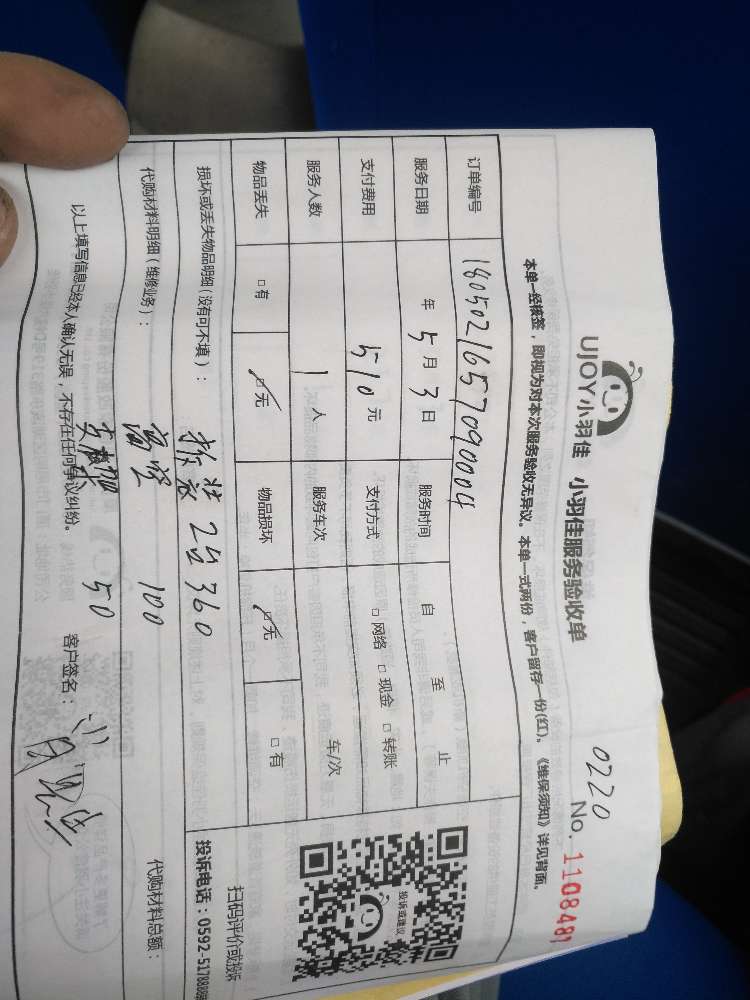 0220
UJOY小羽佳 小羽佳服务验收单 No. 1108481
本单一经核签，即视为对本次服务验收无异议。本单一式两份，客户留存一份(红)。《维保须知》详见背面。
订单编号 1805021657090004
服务日期 年 5 月 3 日 服务时间 自 至 止
支付费用 510 元 支付方式 □ 网络 □ 现金 □ 转账
服务人数 1 人 服务车次 车/次
物品丢失 □ 有 □ 无 物品损坏 □ 无 □ 有
投诉或建议
扫码评价或投诉
投诉电话：0592-5178888
损坏或丢失物品明细 (没有可不填)：
拆装 2台 360
代购材料明细 (维修业务)： 高空 100 代购材料总额：
支架 50
以上填写信息已经本人确认无误，不存在任何争议纠纷。 客户签名：